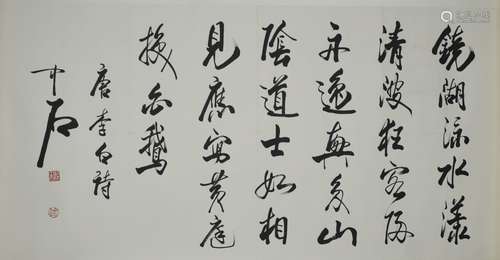 鏡湖流水漾
清波狂客歸
舟逸興多山
陰道士如相
見應寫黃庭
換白鵝
唐李白詩
中石